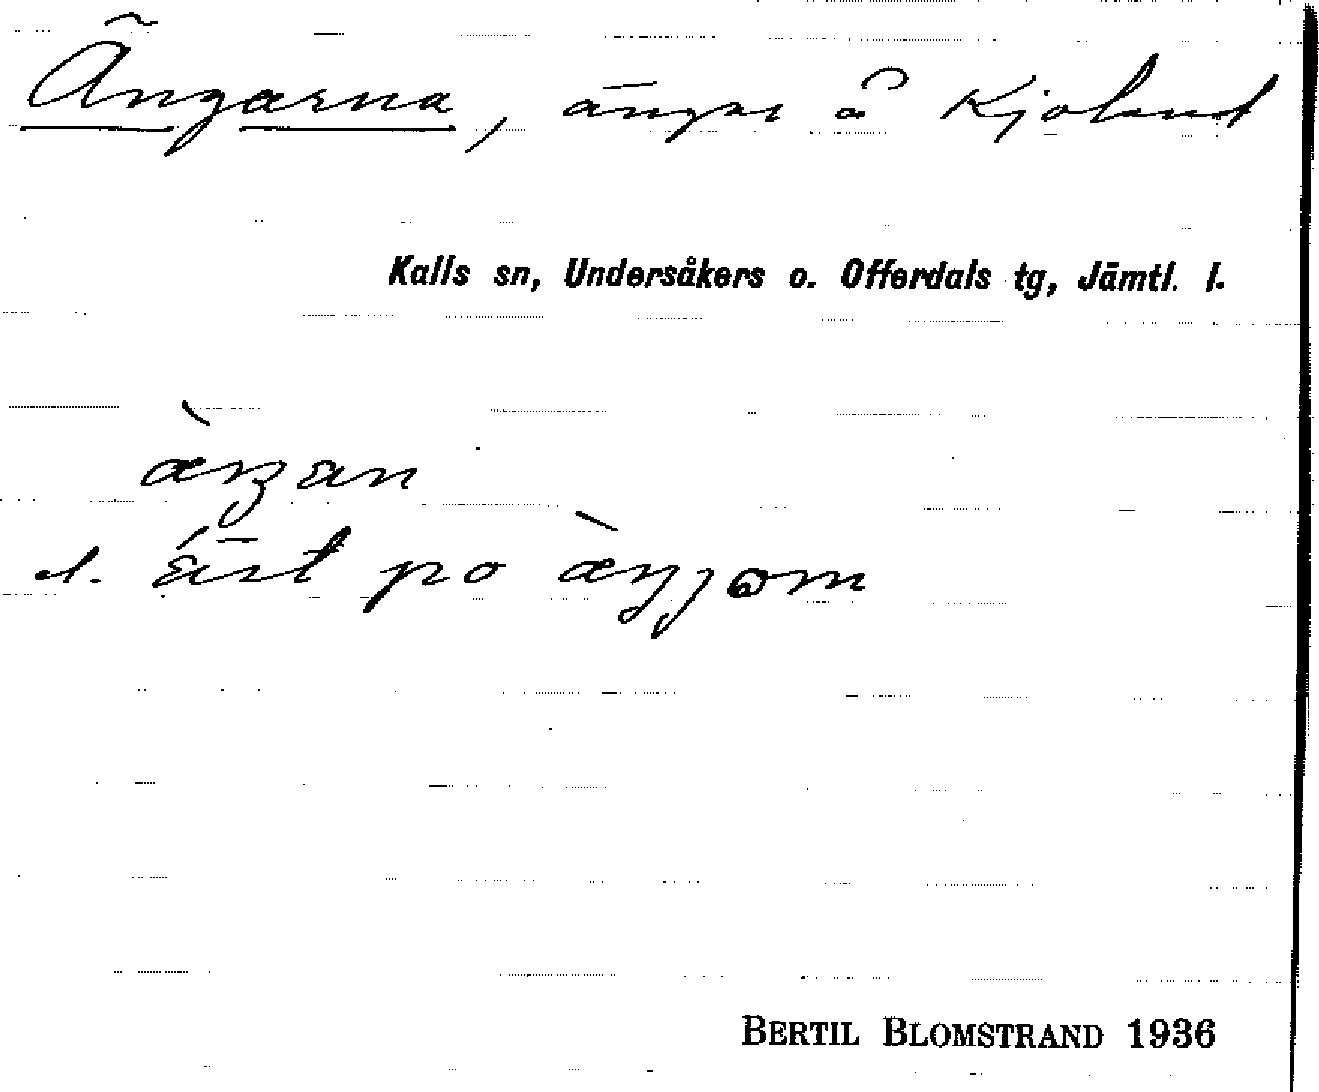 Ängarna, ängar å Kjoland
Kalls sn, Undersåkers o. Offerdals tg, Jämtl. l.
æ̀ŋan
el. äst po æ̀ŋjom
BERTIL BLOMSTRAND 1936